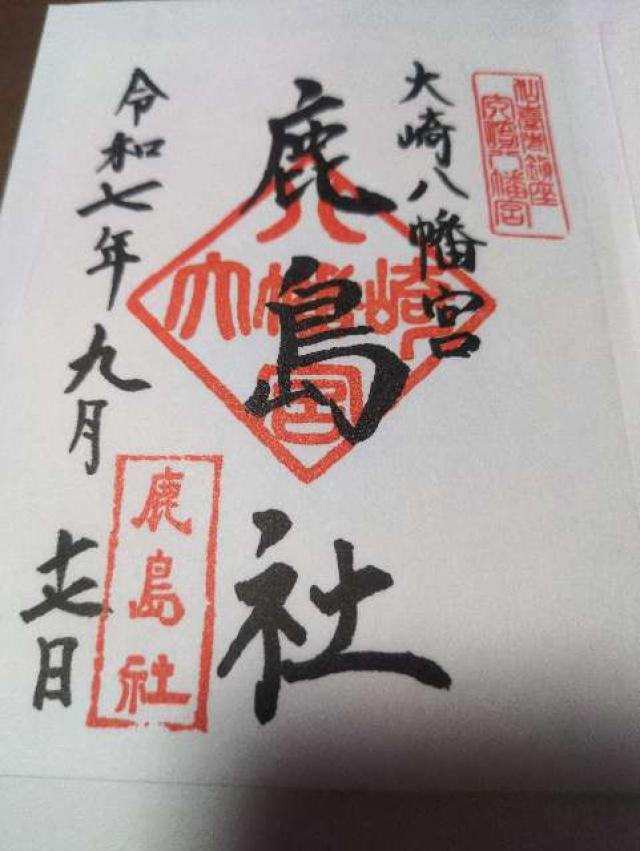 仙臺市鎮座
大崎八幡宮
大崎八幡宮
鹿島社
大崎八幡宮
令和七年九月十七日
鹿島社